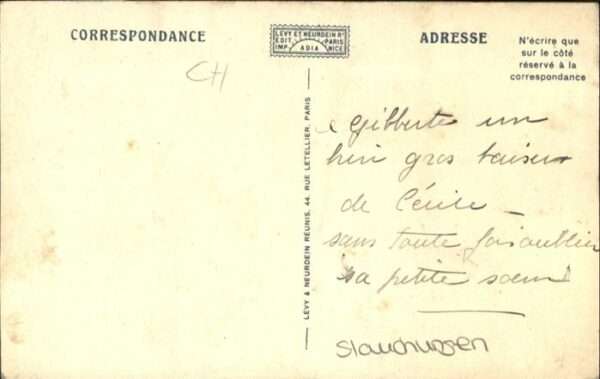 CORRESPONDANCE
LEVY ET NEURDEIN Rs
EDIT. PARIS
IMP. ADIA NICE
ADRESSE
N'écrire que
sur le côté
réservé à la
correspondance
CH
LÉVY & NEURDEIN RÉUNIS, 44, RUE LETELLIER, PARIS
Gilberte un
bien gros baiser
de Cécile _
sans toute fois oublier
sa petite soeur
Stauchungen